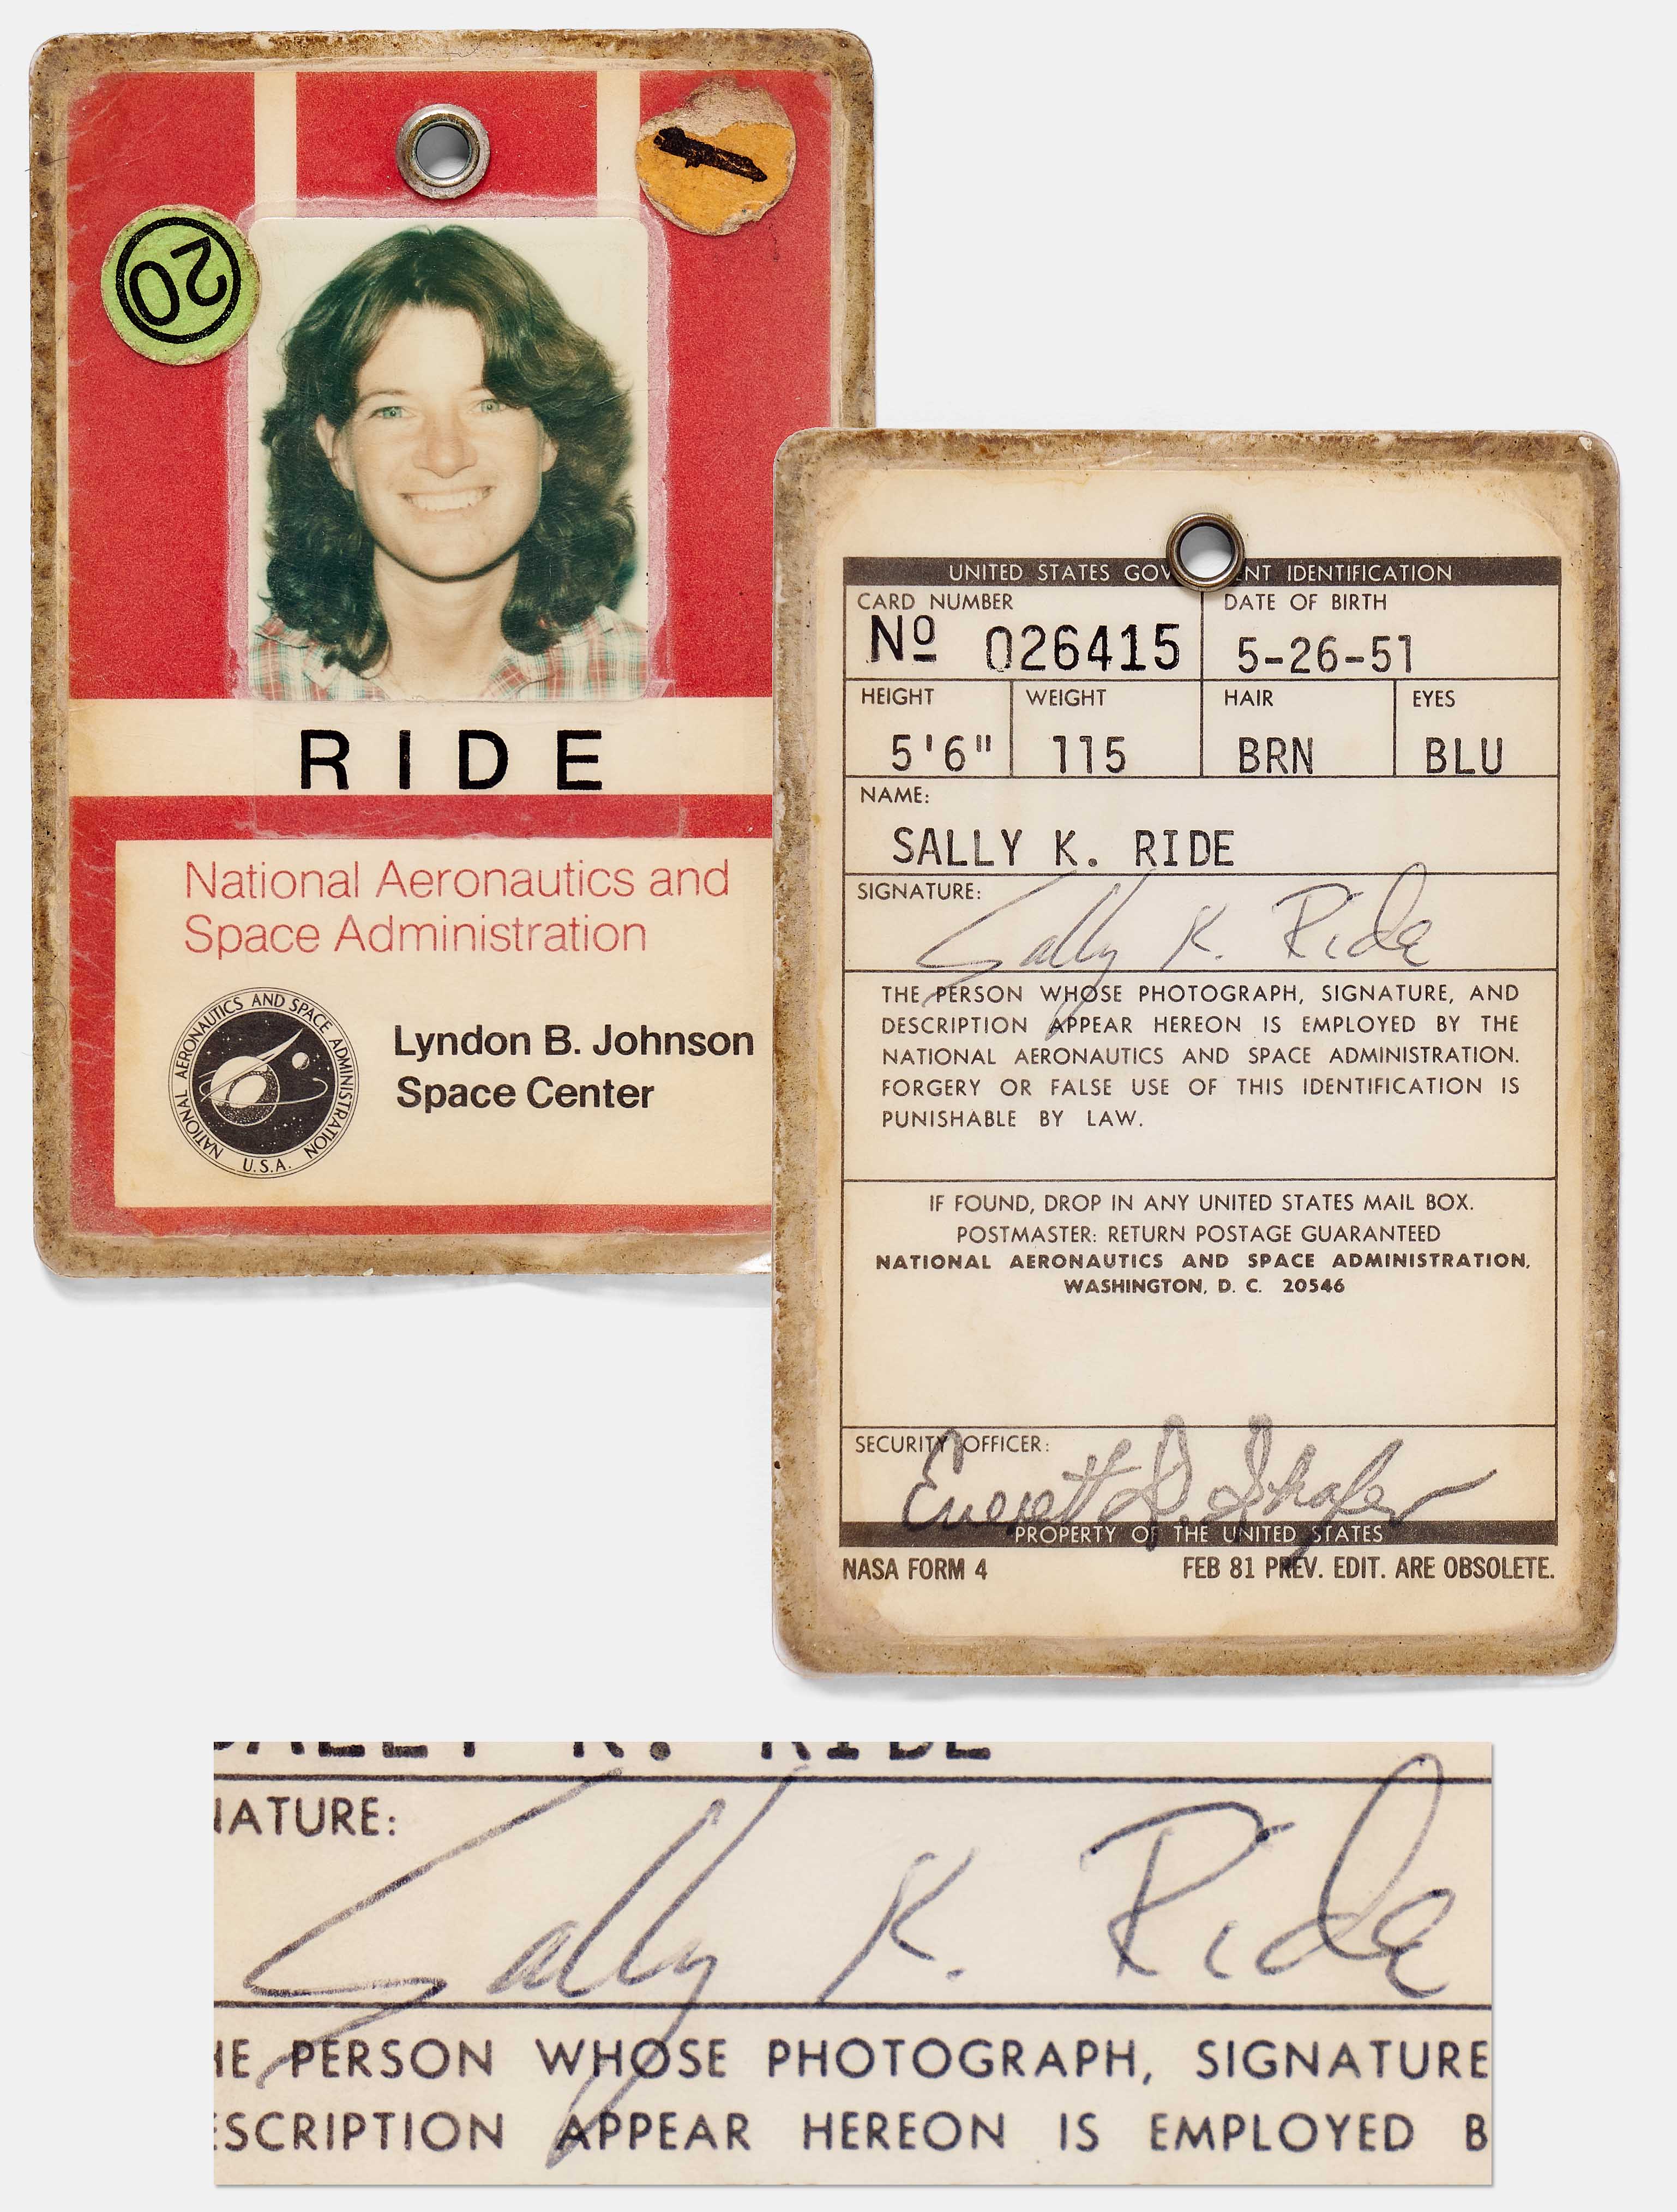 20
RIDE
National Aeronautics and
Space Administration
NATIONAL AERONAUTICS AND SPACE ADMINISTRATION
U.S.A.
Lyndon B. Johnson
Space Center
UNITED STATES GOV ENT IDENTIFICATION
CARD NUMBER
Nº 026415
DATE OF BIRTH
5-26-51
HEIGHT
5'6"
WEIGHT
115
HAIR
BRN
EYES
BLU
NAME:
SALLY K. RIDE
SIGNATURE:
Sally K. Ride
THE PERSON WHOSE PHOTOGRAPH, SIGNATURE, AND
DESCRIPTION APPEAR HEREON IS EMPLOYED BY THE
NATIONAL AERONAUTICS AND SPACE ADMINISTRATION.
FORGERY OR FALSE USE OF THIS IDENTIFICATION IS
PUNISHABLE BY LAW.
IF FOUND, DROP IN ANY UNITED STATES MAIL BOX.
POSTMASTER: RETURN POSTAGE GUARANTEED
NATIONAL AERONAUTICS AND SPACE ADMINISTRATION,
WASHINGTON, D. C. 20546
SECURITY OFFICER:
Everett D. Shafer
PROPERTY OF THE UNITED STATES
NASA FORM 4 FEB 81 PREV. EDIT. ARE OBSOLETE.
SALLY K. RIDE
NATURE:
Sally K. Ride
HE PERSON WHOSE PHOTOGRAPH, SIGNATURE
ESCRIPTION APPEAR HEREON IS EMPLOYED B